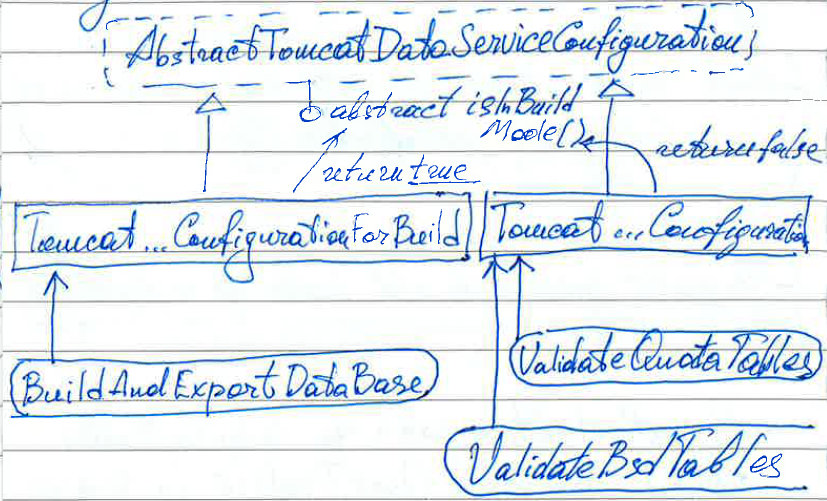 AbstractTomcatDataServiceConfiguration
abstract isInBuild
Mode()
return true
return false
Tomcat...ConfigurationForBuild
Tomcat...Configuration
ValidateQuotaTables
BuildAndExportDataBase
ValidateBsdTables